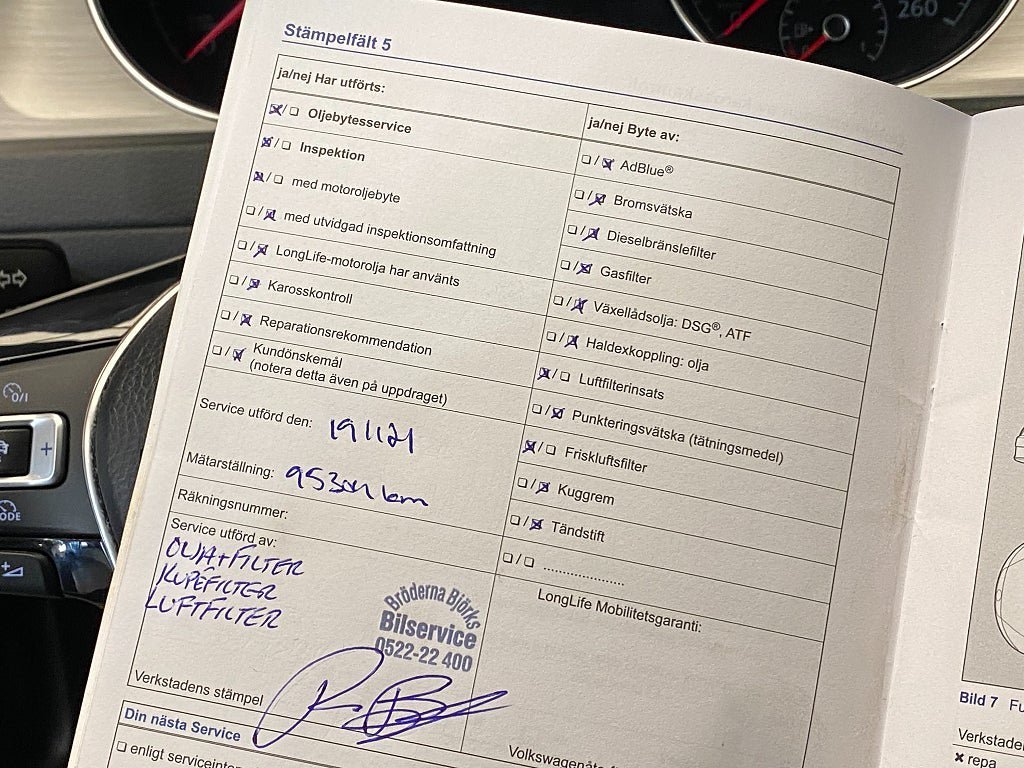 260
Stämpelfält 5
ja/nej Har utförts:
Oljebytesservice
Inspektion
med motoroljebyte
med utvidgad inspektionsomfattning
LongLife-motorolja har använts
Karosskontroll
Reparationsrekommendation
Kundönskemål
(notera detta även på uppdraget)
Service utförd den:
Mätarställning:
Räkningsnummer:
Service utförd av:
OLJA+FILTER
KUPEFILTER
LUFTFILTER
Bröderna Björks
Bilservice
0522-22 400
Verkstadens stämpel
Din nästa Service
ja/nej Byte av:
AdBlue®
Bromsvätska
Dieselbränslefilter
Gasfilter
Växellådsolja: DSG®, ATF
Haldexkoppling: olja
Luftfilterinsats
Punkteringsvätska (tätningsmedel)
Friskluftsfilter
Kuggrem
Tändstift
LongLife Mobilitetsgaranti:
Bild 7
repa
0/I